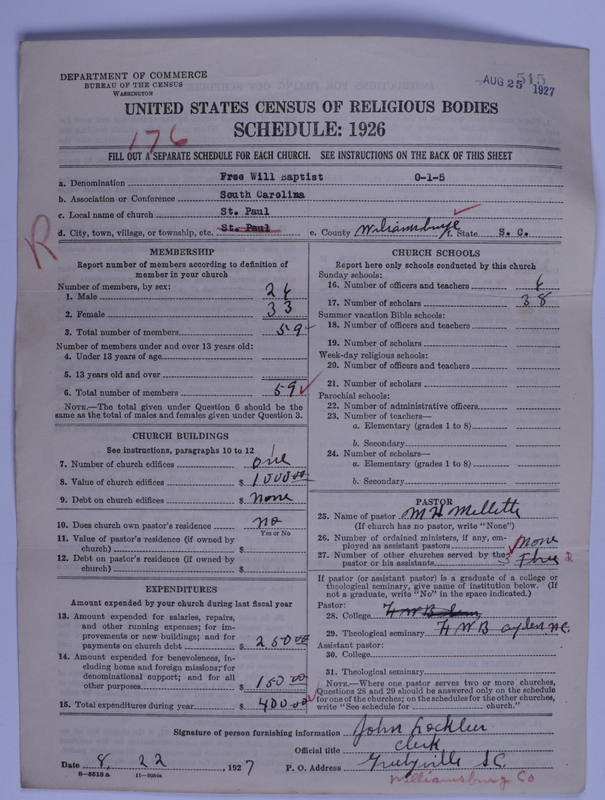 DEPARTMENT OF COMMERCE
BUREAU OF THE CENSUS
WASHINGTON
515
AUG 25 1927
UNITED STATES CENSUS OF RELIGIOUS BODIES
SCHEDULE: 1926
176
FILL OUT A SEPARATE SCHEDULE FOR EACH CHURCH. SEE INSTRUCTIONS ON THE BACK OF THIS SHEET
a. Denomination Free Will Baptist 0-1-5
b. Association or Conference South Carolina
c. Local name of church St. Paul
d. City, town, village, or township, etc. St. Paul e. County Williamsburg f. State S. C.
R
MEMBERSHIP
Report number of members according to definition of
member in your church
Number of members, by sex:
1. Male 26
2. Female 33
3. Total number of members 59
Number of members under and over 13 years old:
4. Under 13 years of age
5. 13 years old and over
6. Total number of members 59
NOTE.—The total given under Question 6 should be
same as the total of males and females given under Question 3.
CHURCH BUILDINGS
See instructions, paragraphs 10 to 12
7. Number of church edifices one
8. Value of church edifices $ 1000 00
9. Debt on church edifices $ none
10. Does church own pastor's residence no
Yes or No
11. Value of pastor's residence (if owned by
church) $
12. Debt on pastor's residence (if owned by
church) $
EXPENDITURES
Amount expended by your church during last fiscal year
13. Amount expended for salaries, repairs,
and other running expenses; for im-
provements or new buildings; and for
payments on church debt $ 250 00
14. Amount expended for benevolences, in-
cluding home and foreign missions; for
denominational support; and for all
other purposes $ 150 00
15. Total expenditures during year $ 400 00
CHURCH SCHOOLS
Report here only schools conducted by this church
Sunday schools:
16. Number of officers and teachers 6
17. Number of scholars 38
Summer vacation Bible schools:
18. Number of officers and teachers
19. Number of scholars
Week-day religious schools:
20. Number of officers and teachers
21. Number of scholars
Parochial schools:
22. Number of administrative officers
23. Number of teachers—
a. Elementary (grades 1 to 8)
b. Secondary
24. Number of scholars—
a. Elementary (grades 1 to 8)
b. Secondary
PASTOR
25. Name of pastor M H Mellette
(If church has no pastor, write "None")
26. Number of ordained ministers, if any, em-
ployed as assistant pastors none
27. Number of other churches served by the
pastor or his assistants 3 Three
If pastor (or assistant pastor) is a graduate of a college or
theological seminary, give name of institution below. (If
not a graduate, write "No" in the space indicated.)
Pastor:
28. College F W B
29. Theological seminary F W B Ayden N.C.
Assistant pastor:
30. College
31. Theological seminary
NOTE.—Where one pastor serves two or more churches,
Questions 28 and 29 should be answered only on the schedule
for one of the churches; on the schedules for the other churches,
write "See schedule for church."
Signature of person furnishing information John
Official title Clerk
Date 8, 22, 1927 P. O. Address Greelyville S.C.
8-5518a
Williamsburg Co